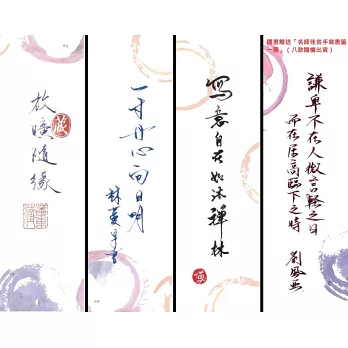 隨書贈送「名師佳言手寫書籤
一張」（八款隨機出貨）
謙卑不在人微言輕之日
而在居高臨下之時
劉墉
寫意自在如沐禪林
一寸丹心向日明
放曠隨緣
藏